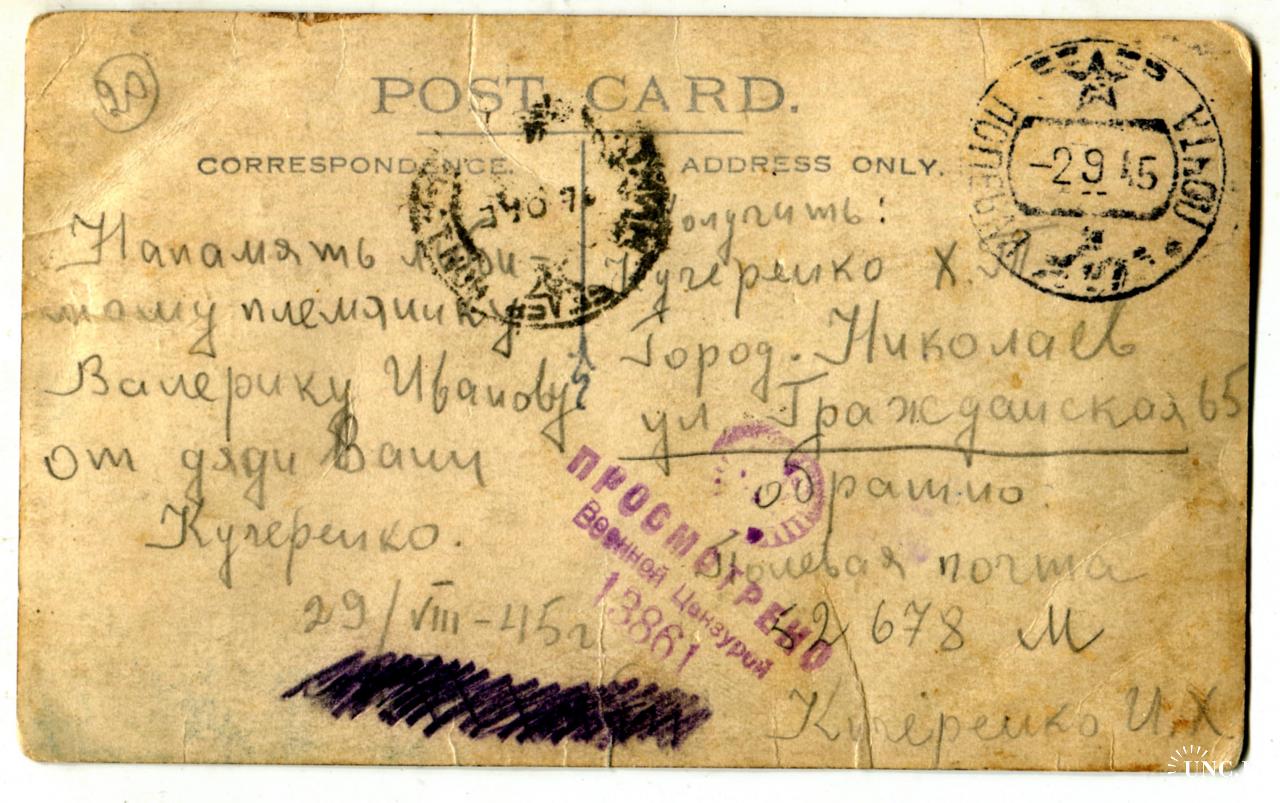 20
POST CARD.
CORRESPONDENCE.
ADDRESS ONLY.
ПОЛЕВАЯ ПОЧТА
-2 9 45
Напамять люби-
мому племяннику
Валерику Иванову
от дяди Вани
Кучеренко.
29/VIII-45г
Получить:
Кучеренко Х.
Город. Николаев
ул. Гражданская 65
обратно
Полевая почта
42 678 М
Кучеренко И.Х.
ПРОСМОТРЕНО
Военной Цензурой
13861
UNC